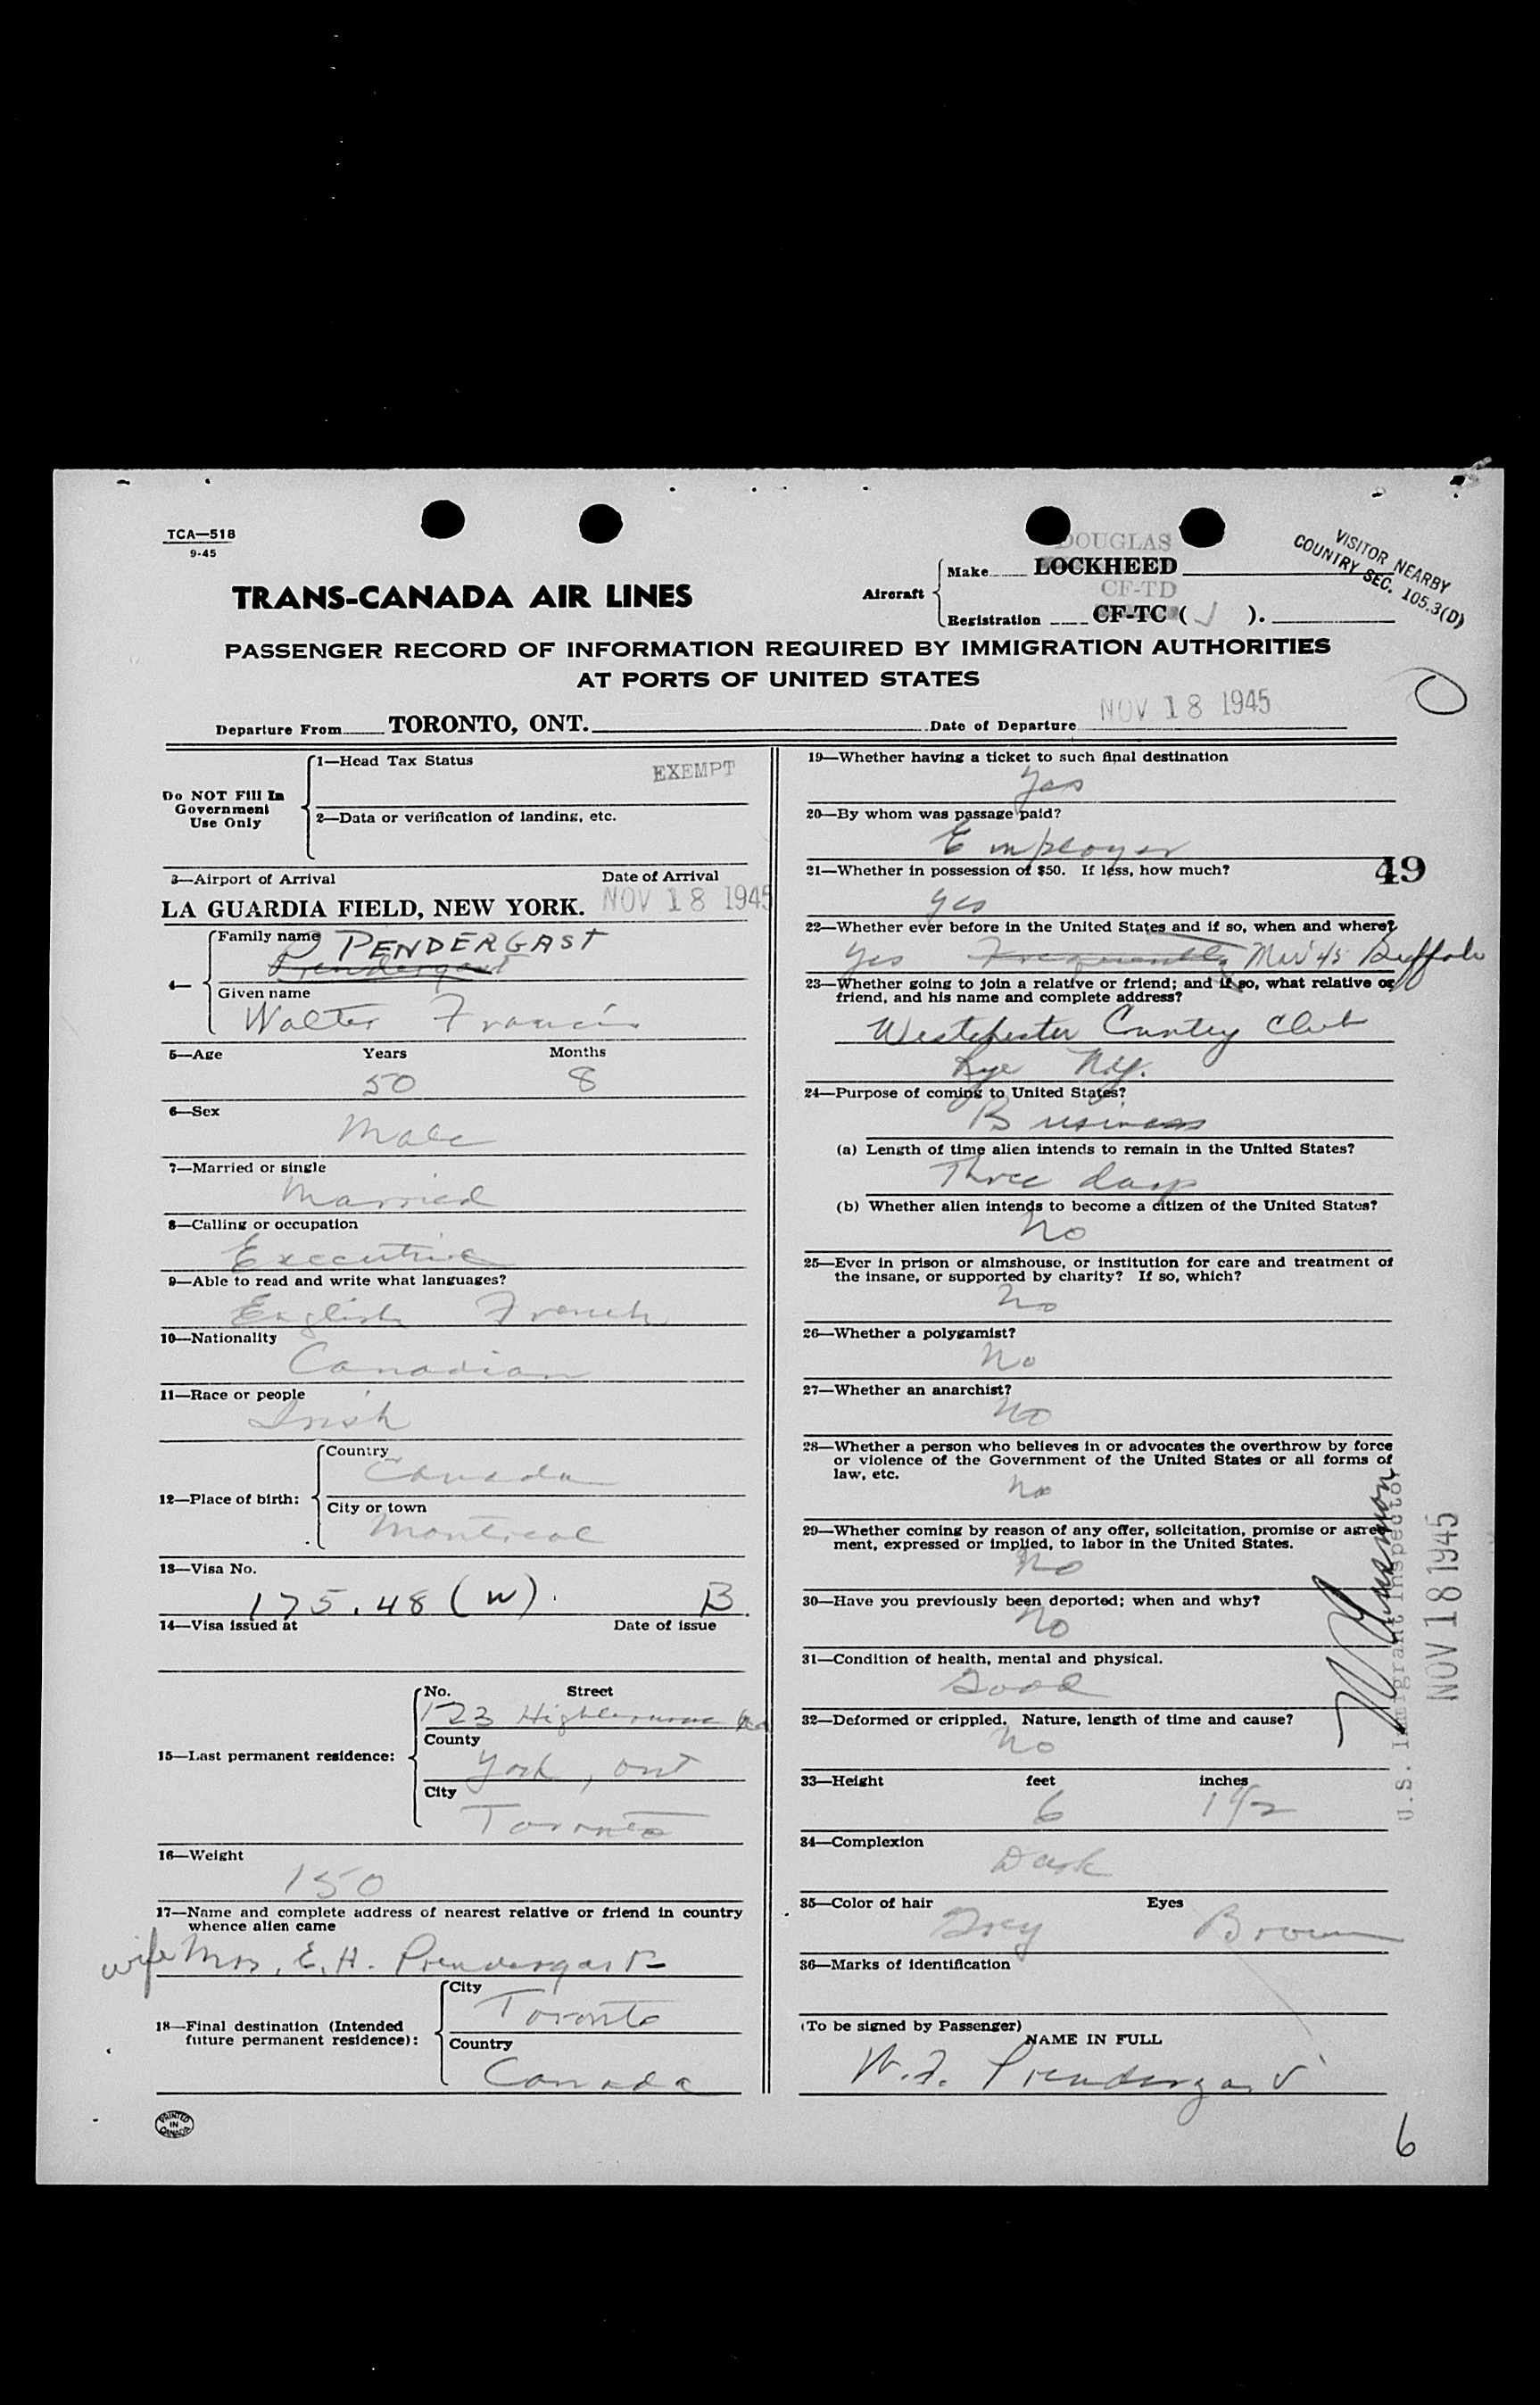 TCA—518
9-45
DOUGLAS
Make LOCKHEED
VISITOR NEARBY
COUNTRY SEC. 105.3(D)
TRANS-CANADA AIR LINES
Aircraft
CF-TD
Registration CF-TC ( J ).
PASSENGER RECORD OF INFORMATION REQUIRED BY IMMIGRATION AUTHORITIES
AT PORTS OF UNITED STATES
Departure From TORONTO, ONT. Date of Departure NOV 18 1945
Do NOT Fill In
Government
Use Only
1—Head Tax Status EXEMPT
2—Data or verification of landing, etc.
3—Airport of Arrival Date of Arrival
LA GUARDIA FIELD, NEW YORK. NOV 18 1945
4— Family name PENDERGAST
Prendergast
Given name
Walter Francis
5—Age Years Months
50 8
6—Sex
Male
7—Married or single
Married
8—Calling or occupation
Executive
9—Able to read and write what languages?
English French
10—Nationality
Canadian
11—Race or people
Irish
12—Place of birth:
Country
Canada
City or town
Montreal
13—Visa No.
175.48 (W). B.
14—Visa issued at Date of issue
15—Last permanent residence:
No. Street
123 Highbourne Rd
County
York, Ont
City
Toronto
16—Weight
150
17—Name and complete address of nearest relative or friend in country
whence alien came
wife Mrs. E. H. Prendergast
18—Final destination (Intended
future permanent residence):
City
Toronto
Country
Canada
PRINTED
IN
CANADA
19—Whether having a ticket to such final destination
Yes
20—By whom was passage paid?
Employer
49
21—Whether in possession of $50. If less, how much?
Yes
22—Whether ever before in the United States and if so, when and where?
Yes Frequently Mar 45 Buffalo
23—Whether going to join a relative or friend; and if so, what relative or
friend, and his name and complete address?
Westchester Country Club
Rye N.Y.
24—Purpose of coming to United States?
Business
(a) Length of time alien intends to remain in the United States?
Three days
(b) Whether alien intends to become a citizen of the United States?
No
25—Ever in prison or almshouse, or institution for care and treatment of
the insane, or supported by charity? If so, which?
No
26—Whether a polygamist?
No
27—Whether an anarchist?
No
28—Whether a person who believes in or advocates the overthrow by force
or violence of the Government of the United States or all forms of
law, etc.
No
29—Whether coming by reason of any offer, solicitation, promise or agree-
ment, expressed or implied, to labor in the United States.
No
30—Have you previously been deported; when and why?
No
31—Condition of health, mental and physical.
Good
32—Deformed or crippled. Nature, length of time and cause?
No
33—Height feet inches
6 1 1/2
34—Complexion
Dark
35—Color of hair Eyes
Grey Brown
36—Marks of identification
(To be signed by Passenger)
NAME IN FULL
W. F. Prendergast
U.S. Immigrant Inspector
NOV 18 1945
6